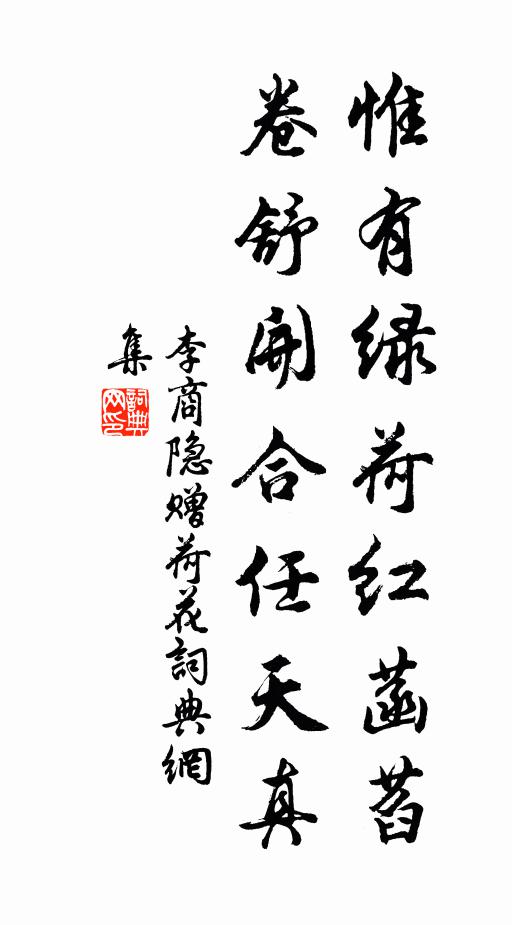 惟有绿荷红菡萏
卷舒開合任天真
李商隐赠荷花詞典網
集
詞典网印